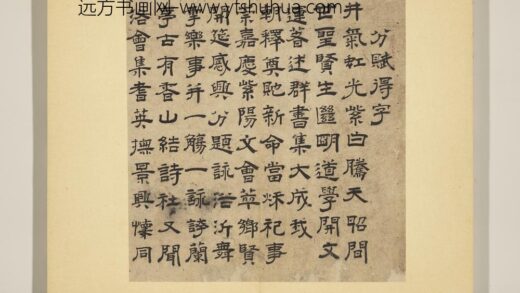 远方书画网-www.yfshuhua.com
分賦得字
井氣虹光紫白騰天昭間
世聖賢生繼明道學開文
運著述群書集大成我
朝釋奠貤新命當秌祀事
榮嘉慶紫陽文會萃鄉賢
開筵感興分題詠浴沂舞
雩樂事并一觴一詠誇蘭
亭古有香山結詩社又聞
洛會集耆英撫景興懷同